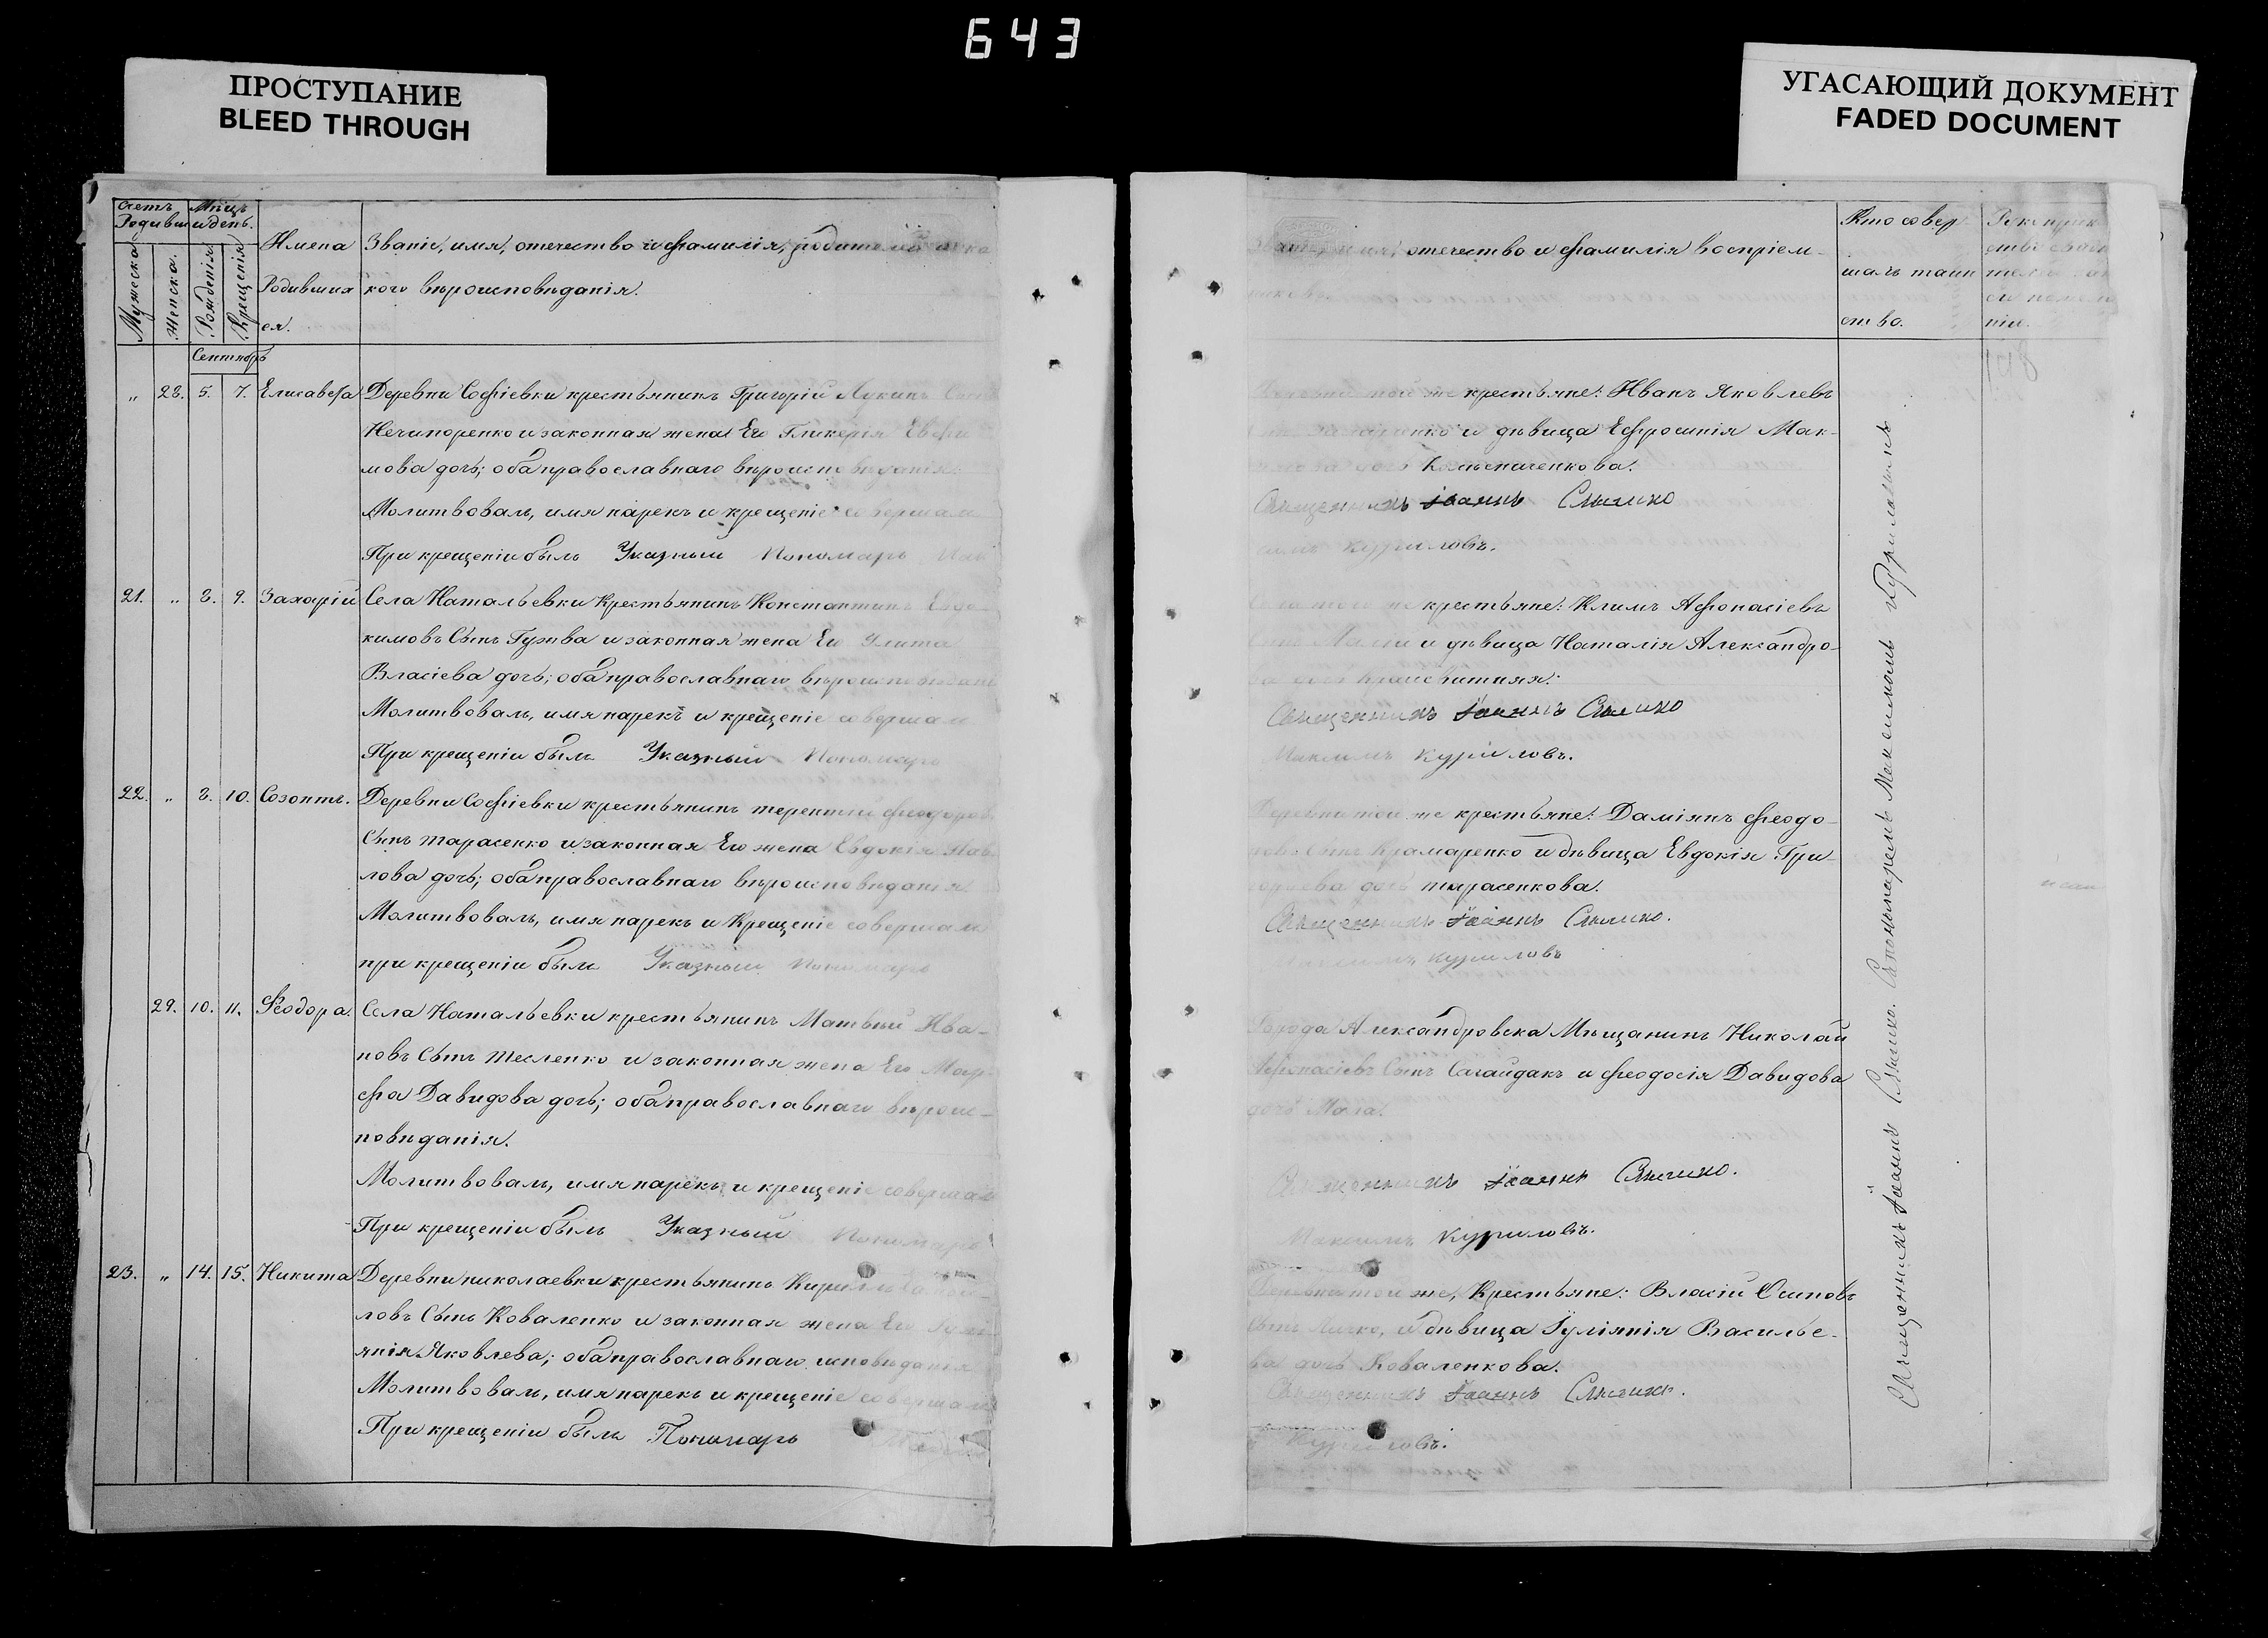 643
ПРОСТУПАНИЕ
BLEED THROUGH
УГАСАЮЩИЙ ДОКУМЕНТ
FADED DOCUMENT
Счетъ Родивш
Мѣсяцъ и день.
Мужеска
Женска.
Рожденія
Крещенія
Имена
Родивших
ся.
Званіе, имя, отечество и фамилія, родителей и ка
кого вѣроисповѣданія.
Сентябрь
„ 28. 5. 7. Елисавеѳа Деревни Софіевки крестьянинъ Григорій Лукинъ Сынъ
Нечипоренко и законная жена Его Гликерія Евфи
мова дочь; оба православнаго вѣроисповѣданія.
Молитвовалъ, имя нарекъ и крещеніе совершалъ
При крещеніи былъ Указный Пономарь
21. „ 8. 9. Захарій Села Натальевки Крестьянинъ Константинъ Евдо
кимовъ Сынъ Гужва и законная жена Его Улита
Власіева дочь; оба православнаго вѣроисповѣдані
Молитвовалъ, имя нарекъ и крещеніе совершалъ
При крещеніи былъ Указный Пономарь
22. „ 8. 10. Созонтъ. Деревни Софіевки крестьянинъ терентій феодоров
Сынъ тарасенко и законная Его жена Евдокія Пав
лова дочь; оба православнаго вѣроисповѣданія
Молитвовалъ, имя нарекъ и Крещеніе совершалъ
при крещеніи былъ Указный Пономарь
29. 10. 11. Ѳеодора. Села Натальевки крестьянинъ Матвѣй Ива-
новъ Сынъ тесленко и законная жена Его Мар-
фа Давидова дочь; оба православнаго вѣроис-
повѣданія.
Молитвовалъ, имя нарекъ и крещеніе совершалъ
При крещеніи былъ Указный Пономарь
23. „ 14. 15. Никита Деревни николаевки крестьянинъ Кириллъ
ловъ Сынъ Коваленко и законная жена Его
янія Яковлева; оба православнаго исповѣданія
Молитвовалъ, имя нарекъ и крещеніе совершалъ
При крещеніи былъ Пономарь
Званіе, имя, отечество и фамилія воспріем-
никовъ.
Кто совер
шалъ таин
ство.
Рукоприк
178
Деревни той же крестьяне: Иванъ Яковлевъ
и дѣвица Ефросинія Мак-
дочь
Священникъ Іоаннъ
Куриловъ.
Села того же крестьяне: Климъ Афонасіевъ
и дѣвица Наталія Александро-
ва дочь
Священникъ Іоаннъ
Максимъ Куриловъ.
Деревни той же крестьяне: Даміянъ феодо-
ровъ Сынъ Крамаренко и дѣвица Евдокія Гри-
горьева дочь тарасенкова.
Священникъ Іоаннъ
Максимъ Куриловъ
Города Александровска Мѣщанинъ Николай
Афонасіевъ Сынъ Сагайдакъ и феодосія Давидова
дочь
Священникъ Іоаннъ
Максимъ Куриловъ.
Деревни той же, Крестьяне: Власій Осиповъ
Сынъ и дѣвица Іуліянія Василье-
ва дочь Коваленкова.
Священникъ Іоаннъ
Куриловъ.
Священникъ Іоаннъ Съ пономаремъ Максимомъ Куриловымъ